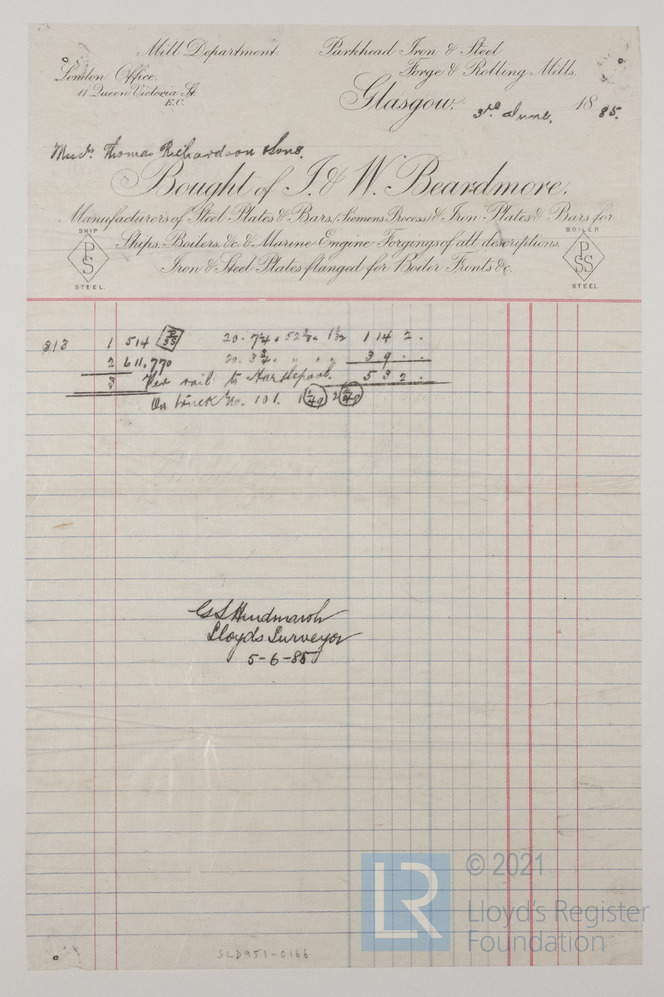 Mill Department. Parkhead Iron & Steel
London Office, Forge & Rolling Mills.
17 Queen Victoria St. E.C.
Glasgow, 3rd June, 1885.
Messrs Thomas Richardson & Sons.
Bought of I. & W. Beardmore,
Manufacturers of Steel Plates & Bars, (Siemens Process) & Iron Plates & Bars for
SHIP P S STEEL. Ships, Boilers, &c. & Marine Engine Forgings of all descriptions. BOILER P SS STEEL
Iron & Steel Plates flanged for Boiler Fronts &c.
813 1 514 P SS 20. 7¾ . 1 14 2 .
2 611.770 20. 3¾ . " . " 3 9 . .
3 Per rail to Hartlepool. 5 3 2 .
On truck No. 101.
Lloyds Surveyor
5-6-85
SLD951-0166
LR © 2021
Lloyd's Register
Foundation